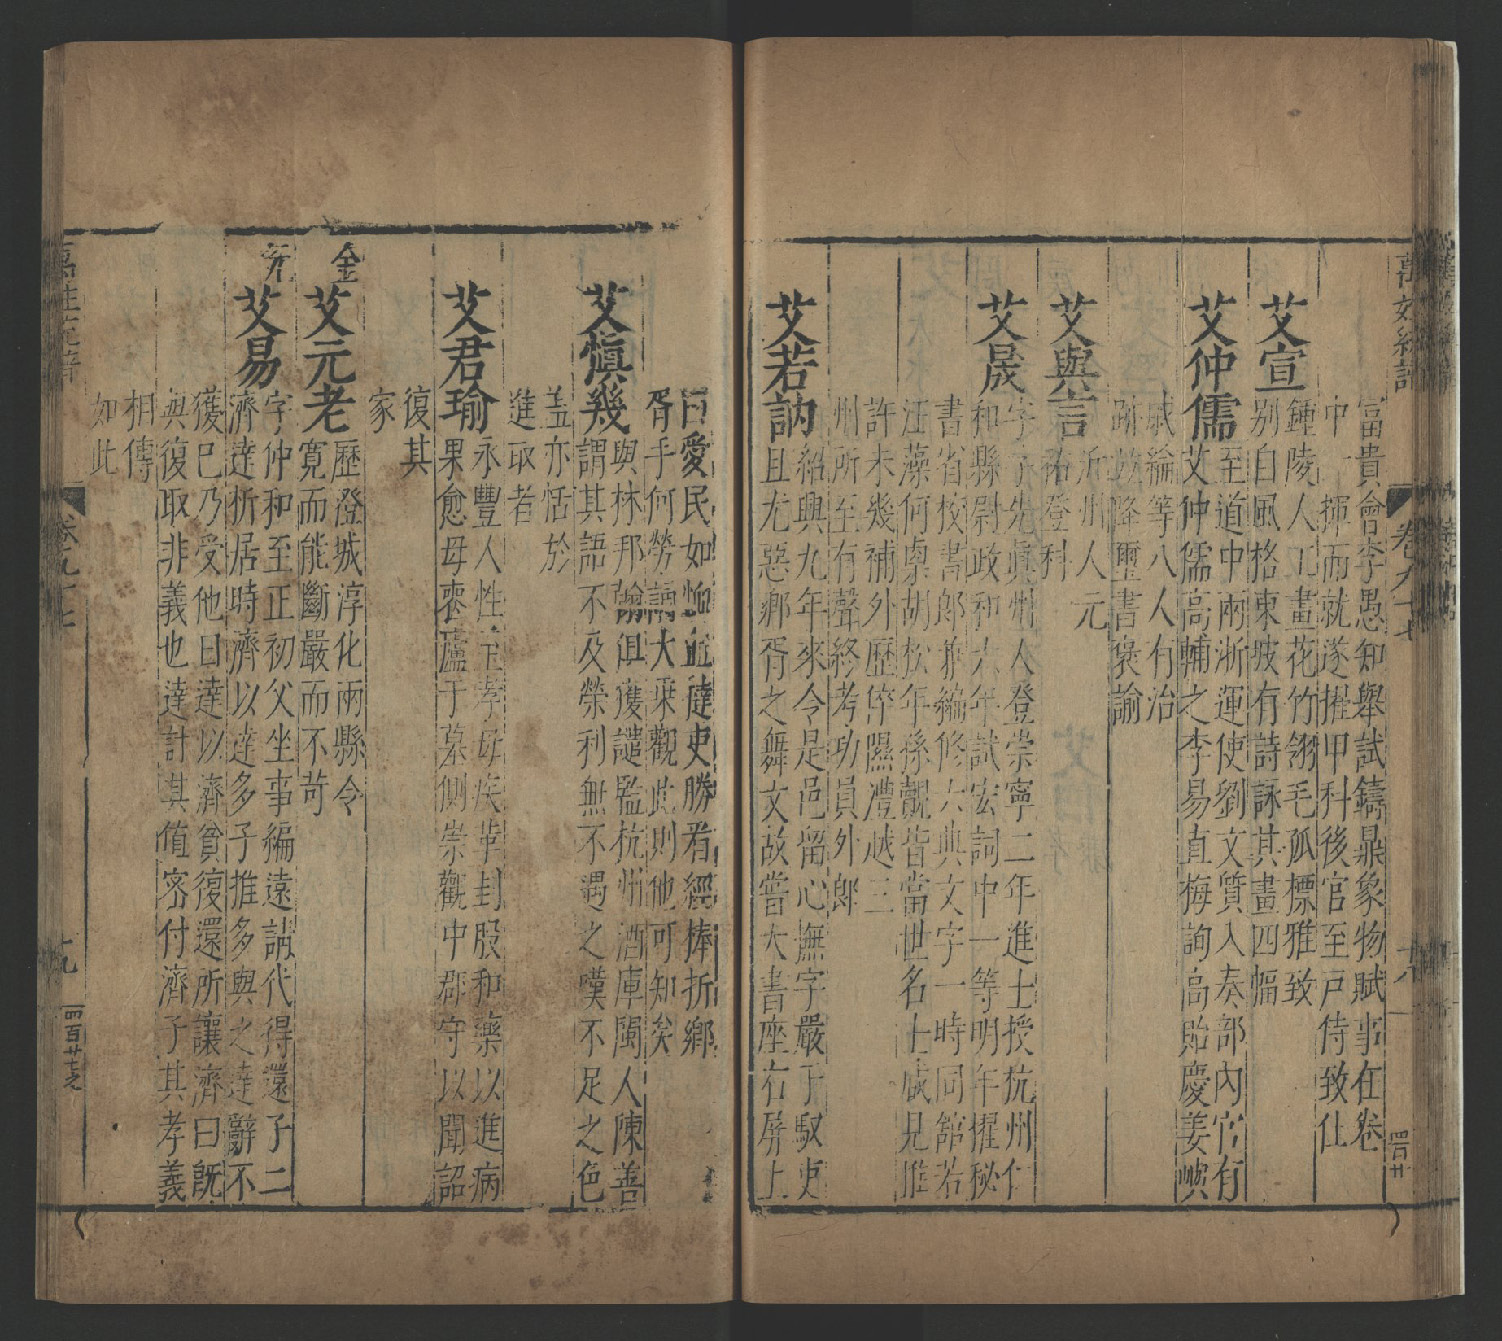 富貴會李愚知舉試鑄鼎象物賦事在卷
中一揮而就遂擢甲科後官至戸侍致仕
艾宣
鍾陵人工畫花竹翎毛孤標雅致
别自風格東坡有詩詠其畫四幅
艾仲儒
至道中兩浙運使劉文質入奏部內官有
艾仲儒高輔之李易直梅詢高貽慶姜嶼
戚綸等八人有治
跡並降璽書褒諭
艾與言
沂州人元
祐登科
艾晟
字子先眞州人登崇寧二年進士授杭州仁
和縣尉政和六年試宏詞中一等明年擢秘
書省校書郎兼編修六典文字一時同舘若
汪藻何㮚胡松年孫覿皆當世名士咸見推
許未幾補外歷倅隰澧越三
州所至有聲終考功員外郎
艾若訥
紹興九年來令是邑留心撫字嚴于馭吏
且尤惡鄉胥之舞文故嘗大書座右屏上
曰愛民如 撻吏勝看經捧折鄉
胥手何勞誦大乘觀此則他可知矣
艾愼幾
與林邦翰俱獲譴監杭州酒庫閩人陳善
謂其語不及榮利無不遇之嘆不足之色
盖亦恬於
進取者
艾君瑜
永豐人性至孝母疾葷封股和藥以進病
果愈母喪廬于墓側崇觀中郡守以聞詔
復其
家
金
艾元老
歷澄城淳化兩縣令
寛而能斷嚴而不苛
元
艾易
字仲和至正初父坐事編遠請代得還子二
濟達析居時濟以達多子推多與之達辭不
獲已乃受他日達以濟貧復還所讓濟曰旣
與復取非義也達計其値密付濟子其孝義
相傳
如此
卷九十七
十九